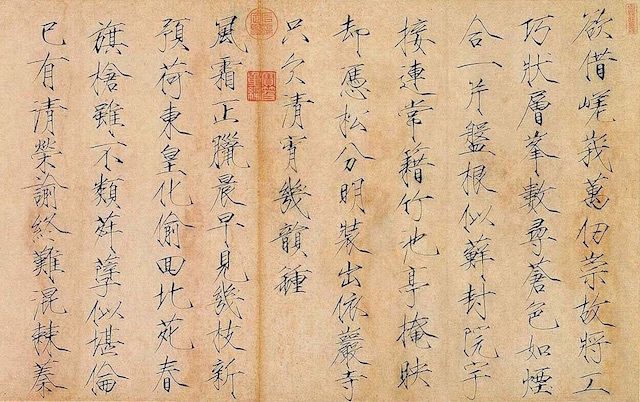 欲借嵯峨萬仞崇故將工
巧狀層峯數尋蒼色如煙
合一片盤根似蘚封院宇
接連常籍竹池亭掩映
却憑松分明裝出依巖寺
只欠清宵幾韻鍾
風霜正臘晨早見幾枝新
預荷東皇化偷回北苑春
旗槍雖不類荈孽似堪倫
已有清榮諭終難混棘蓁